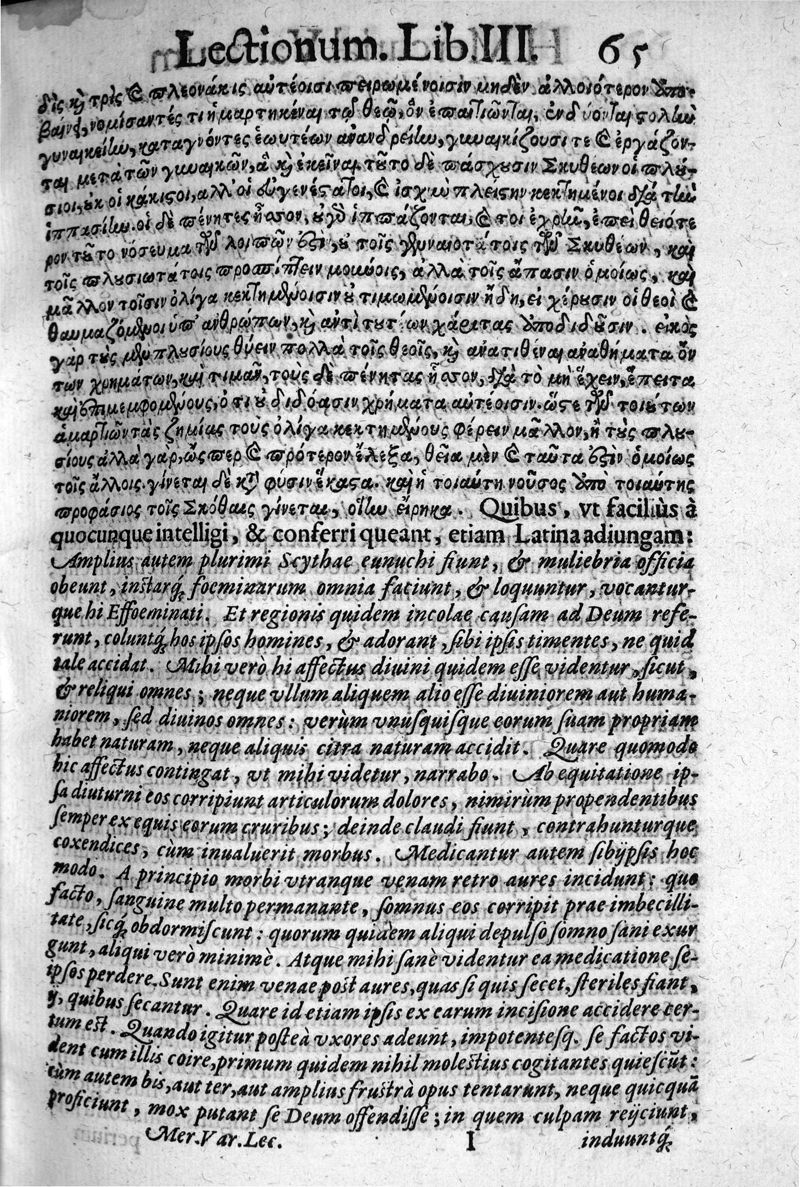 Lectionum. Lib. III. 65
δὶς καὶ τρὶς καὶ πλεονάκις αὐτέοισι πειρωμένοισιν μηδὲν ἀλλοιότερον ὑπο-
βαίνῃ, νομίσαντές τι ἡμαρτηκέναι τῷ θεῷ, ὃν ἐπαιτιῶνται, ἐνδύονται στολὴν
γυναικείην, καταγνόντες ἑωυτέων ἀνανδρείην, γυναικίζουσί τε καὶ ἐργάζον-
ται μετὰ τῶν γυναικῶν, ἃ καὶ ἐκεῖναι. τοῦτο δὲ πάσχουσιν Σκυθέων οἱ πλού-
σιοι, οὐκ οἱ κάκιστοι, ἀλλ' οἱ εὐγενέστατοι, καὶ ἰσχὺν πλείστην κεκτημένοι διὰ τὴν
ἱππασίην. οἱ δὲ πένητες ἧσσον, οὐ γὰρ ἱππάζονται. καὶ τοι ἐχρῆν, ἐπεὶ θειότε
ρον τοῦτο νόσευμα τῶν λοιπῶν ἐστιν, οὐ τοῖς γενναιοτάτοις τῶν Σκυθέων, καὶ
τοῖς πλουσιωτάτοις προσπίπτειν μούνοις, ἀλλὰ τοῖς ἅπασιν ὁμοίως, καὶ
μᾶλλον τοῖσιν ὀλίγα κεκτημένοισιν οὐ τιμωμένοισιν ἤδη, εἰ χέρουσιν οἱ θεοὶ καὶ
θαυμαζόμενοι ὑπ' ἀνθρώπων, καὶ ἀντὶ τουτέων χάριτας ὑποδιδοῦσιν. εἰκὸς
γὰρ τοὺς μὲν πλουσίους θύειν πολλὰ τοῖς θεοῖς, καὶ ἀνατιθέναι ἀναθήματα ὄν
των χρημάτων, καὶ τιμᾶν, τοὺς δὲ πένητας ἧσσον, διὰ τὸ μὴ ἔχειν, ἔπειτα
καὶ ἐπιμεμφομένους, ὅτι οὐ διδόασιν χρήματα αὐτέοισιν. ὥστε τῶν τοιούτων
ἁμαρτιῶν τὰς ζημίας τοὺς ὀλίγα κεκτημένους φέρειν μᾶλλον, ἢ τοὺς πλου-
σίους ἀλλὰ γὰρ, ὥσπερ καὶ πρότερον ἔλεξα, θεῖα μὲν καὶ ταῦτα ἐστιν ὁμοίως
τοῖς ἄλλοις. γίνεται δὲ κατὰ φύσιν ἕκαστα. καὶ ἡ τοιαύτη νοῦσος ὑπὸ τοιαύτης
προφάσιος τοῖς Σκύθαις γίνεται, οἵην εἴρηκα. Quibus, vt faciliùs à
quocunque intelligi, & conferri queant, etiam Latina adiungam:
Amplius autem plurimi Scythae eunuchi fiunt, & muliebria officia
obeunt, instarq́ foeminarum omnia faciunt, & loquuntur, vocantur-
que hi Effoeminati. Et regionis quidem incolae causam ad Deum refe-
runt, coluntq́ hos ipsos homines, & adorant, sibi ipsis timentes, ne quid
tale accidat. Mihi verò hi affectus diuini quidem esse videntur, sicut
& reliqui omnes; neque vllum aliquem alio esse diuiniorem aut huma-
niorem, sed diuinos omnes: verùm vnusquisque eorum suam propriam
habet naturam, neque aliquis citra naturam accidit. Quare quomodo
hic affectus contingat, vt mihi videtur, narrabo. Ab equitatione ip-
sa diuturni eos corripiunt articulorum dolores, nimirùm propendentibus
semper ex equis eorum cruribus; deinde claudi fiunt, contrahunturque
coxendices, cùm inualuerit morbus. Medicantur autem sibijpsis hoc
modo. A principio morbi vtranque venam retro aures incidunt: quo
facto, sanguine multo permanante, somnus eos corripit prae imbecilli-
tate, sicq́ obdormiscunt: quorum quidem aliqui depulso somno sani exur
gunt, aliqui verò minimè. Atque mihi sanè videntur ea medicatione se-
ipsos perdere. Sunt enim venae post aures, quas si quis secet, steriles fiant,
ij, quibus secantur. Quare id etiam ipsis ex earum incisione accidere cer-
tum est. Quando igitur posteà vxores adeunt, impotentesq́ se factos vi-
dent cum illis coire, primum quidem nihil molestius cogitantes quiescũt:
cùm autem bis, aut ter, aut amplius frustrà opus tentarunt, neque quicquã
proficiunt, mox putant se Deum offendisse; in quem culpam reijciunt,
Mer. Var. Lec. I induuntq́